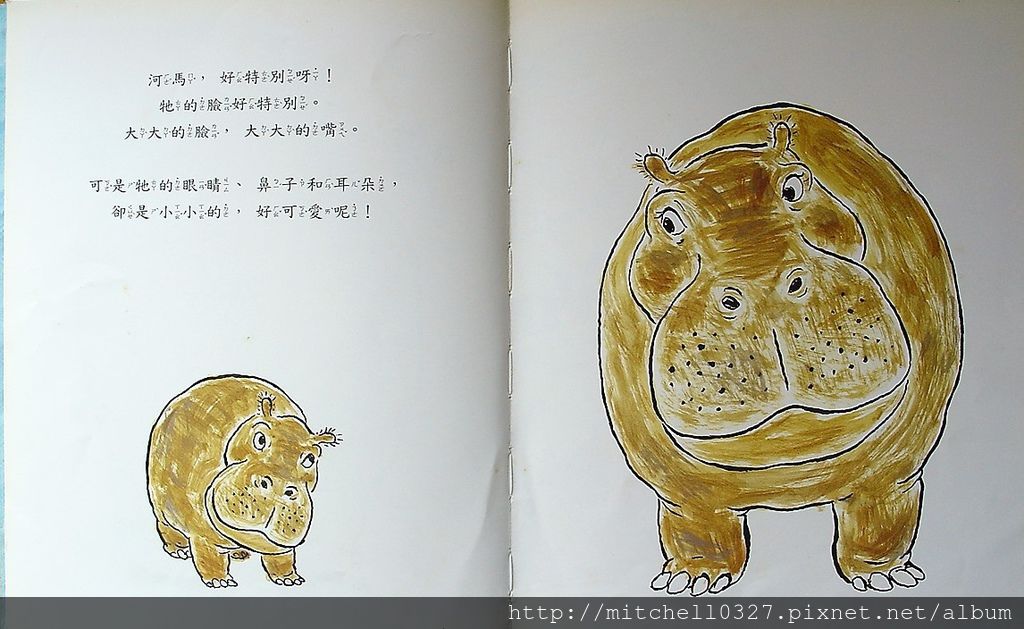 河馬，好特別呀！
牠的臉好特別。
大大的臉，大大的嘴。
可是牠的眼睛、鼻子和耳朵，
卻是小小的，好可愛呢！
http://mitchell0327.pixnet.net/album